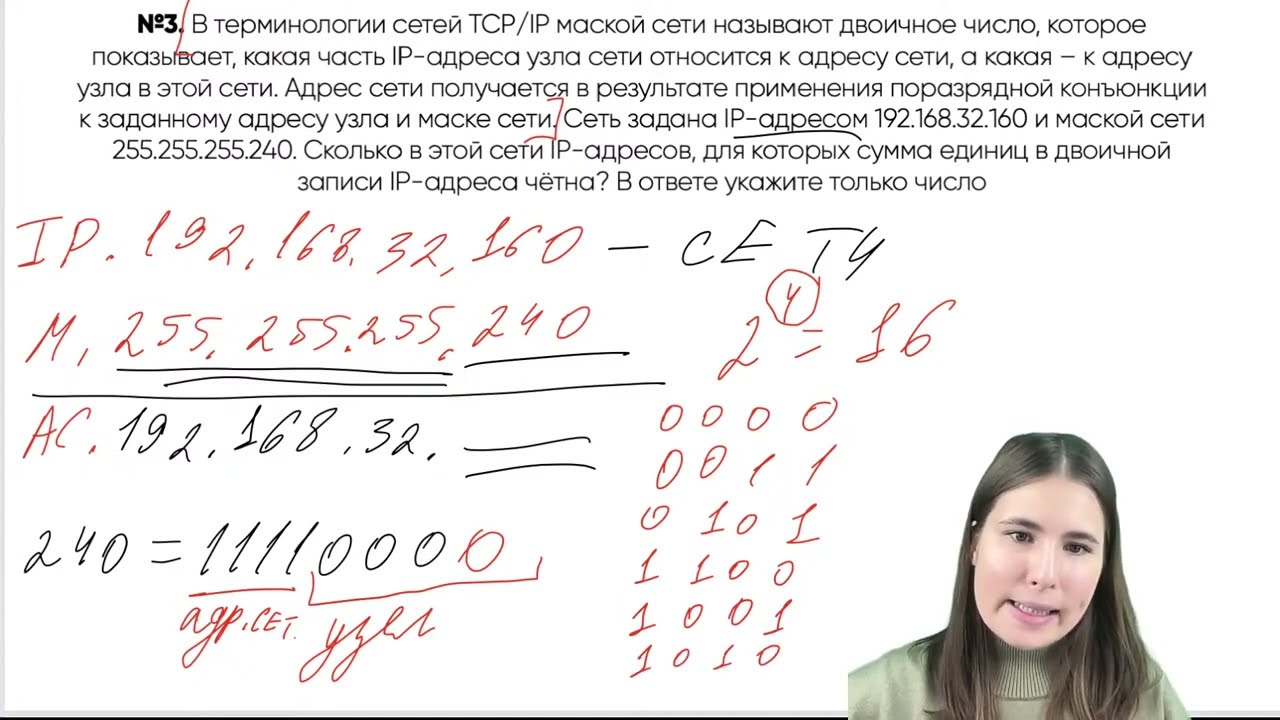 №3. В терминологии сетей TCP/IP маской сети называют двоичное число, которое
показывает, какая часть IP-адреса узла сети относится к адресу сети, а какая – к адресу
узла в этой сети. Адрес сети получается в результате применения поразрядной конъюнкции
к заданному адресу узла и маске сети. Сеть задана IP-адресом 192.168.32.160 и маской сети
255.255.255.240. Сколько в этой сети IP-адресов, для которых сумма единиц в двоичной
записи IP-адреса чётна? В ответе укажите только число
IP. 192.168.32.160 – СЕТИ
М. 255.255.255.240
2^4 = 16
АС. 192.168.32.
0000
0011
0101
1100
1001
1010
240 = 11110000
адр.сет. узел